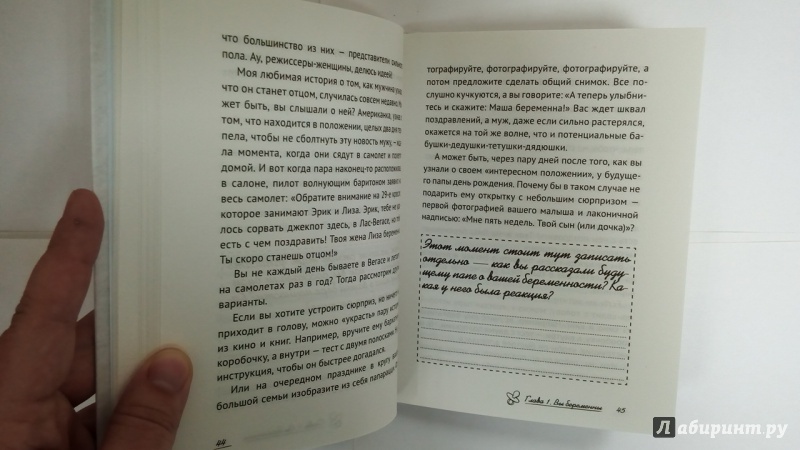 что большинство из них — представители сильно
пола. Ау, режиссеры-женщины, делюсь идеей!
Моя любимая история о том, как мужчина узнал,
что он станет отцом, случилась совсем недавно. Мо
жет быть, вы слышали о ней? Американка, узнав о
том, что находится в положении, целых два дня тер
пела, чтобы не сболтнуть эту новость мужу, – жда
ла момента, когда они сядут в самолет и полетят
домой. И вот когда пара наконец-то расположилась
в салоне, пилот волнующим баритоном заявил на
весь самолет: «Обратите внимание на 29-е кресло,
которое занимают Эрик и Лиза. Эрик, тебе не уда
лось сорвать джекпот здесь, в Лас-Вегасе, но тебя
есть с чем поздравить! Твоя жена Лиза беременна!
Ты скоро станешь отцом!»
Вы не каждый день бываете в Вегасе и летаете
на самолетах раз в год? Тогда рассмотрим другие
варианты.
Если вы хотите устроить сюрприз, но ничего не
приходит в голову, можно «украсть» пару историй
из кино и книг. Например, вручите ему бархатную
коробочку, а внутри — тест с двумя полосками. И
инструкция, чтобы он быстрее догадался.
Или на очередном празднике в кругу вашей
большой семьи изобразите из себя папарацци:
44
тографируйте, фотографируйте, фотографируйте, а
потом предложите сделать общий снимок. Все по-
слушно кучкуются, а вы говорите: «А теперь улыбни-
тесь и скажите: Маша беременна!» Вас ждет шквал
поздравлений, а муж, даже если сильно растерялся,
окажется на той же волне, что и потенциальные ба-
бушки-дедушки-тетушки-дядюшки.
А может быть, через пару дней после того, как вы
узнали о своем «интересном положении», у будуще-
го папы день рождения. Почему бы в таком случае не
подарить ему открытку с небольшим сюрпризом —
первой фотографией вашего малыша и лаконичной
надписью: «Мне пять недель. Твой сын (или дочка)»?
Этот момент стоит тут записать
отдельно — как вы рассказали буду
щему папе о вашей беременности? Ка-
кая у него была реакция?
Глава 1. Вы беременны 45
Лабиринт.ру